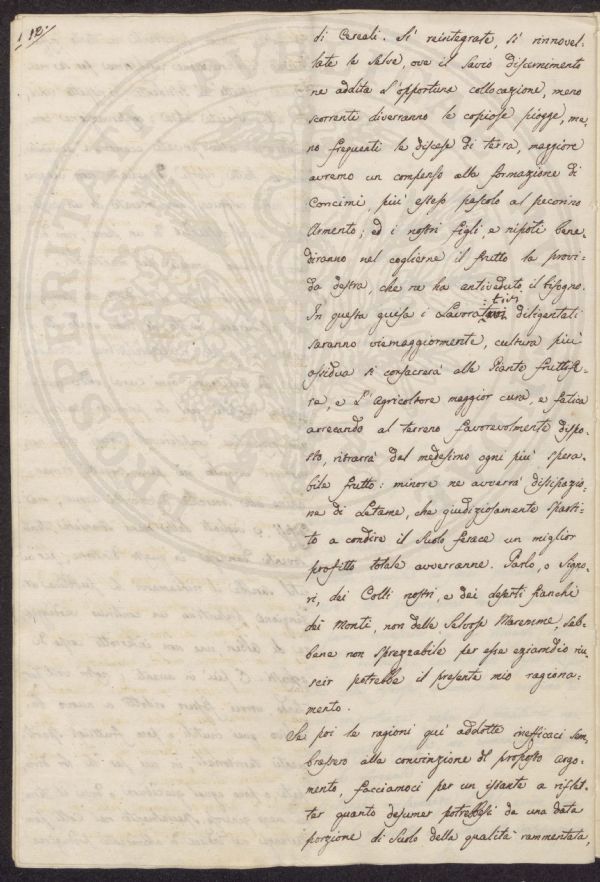 12.
di Cereali. Si reintegrate, si rinnovel-
late le Selve, ove il savio discernimento
ne addita l'opportuna collocazione, meno
scorrenti diverranno le copiose piogge, me-
no frequenti le discese di terra, maggiore
avremo un compenso alla formazione di
Concimi, più esteso pascolo al pecorino
Armento; ed i nostri figli, e nipoti bene-
diranno nel coglierne il frutto la provi-
da destra, che ne ha antiveduto il bisogno.
In questa guisa i Lavorativi diligentati
saranno viemaggiormente, cultura più
assidua si consacrerà alle Piante fruttife-
re, e l'Agricoltore maggior cura, e fatica
arrecando al terreno favorevolmente dispo-
sto, ritrarrà dal medesimo ogni più spera-
bile frutto: minore ne avverrà dissipazio-
ne di Letame, che giudiziosamente sparti-
to a condire il Suolo ferace un miglior
profitto totale avverranne. Parlo, o Signo-
ri, dei Colli nostri, e dei deserti fianchi
dei Monti, non delle Selvose Maremme, seb-
bene non sprezzabile per esse eziamdio riu-
scir potrebbe il presente mio ragiona-
mento.
Se poi le ragioni quì addotte inefficaci sem-
brassero alla convinzione del proposto argo-
mento, facciamoci per un istante a riflet-
ter quanto desumer potrebbesi da una data
porzione di Suolo della qualità rammentata,